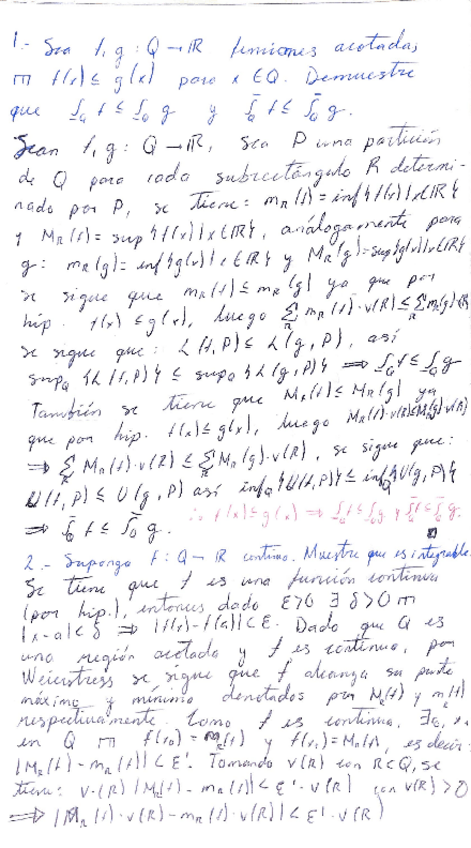 1.- Sea f, g : Q → ℝ funciones acotadas,
∏ f(x) ≤ g(x) para x ∈ Q. Demuestre
que ∫_Q f ≤ ∫_Q g y ∫̄_Q f ≤ ∫̄_Q g.
Sean f, g : Q → ℝ, sea P una partición
de Q para cada subrectángulo R determi-
nado por P, se tiene: m_R(f) = inf{f(x) | x ∈ R}
y M_R(f) = sup{f(x) | x ∈ R}, análogamente para
g: m_R(g) = inf{g(x) | x ∈ R} y M_R(g) = sup{g(x) | x ∈ R}
se sigue que m_R(f) ≤ m_R(g) ya que por
hip. f(x) ≤ g(x), luego Σ_R m_R(f)·v(R) ≤ Σ_R m_R(g)·v(R)
se sigue que: L(f, P) ≤ L(g, P), así
sup_Q {L(f, P)} ≤ sup_Q {L(g, P)} ⟹ ∫_Q f ≤ ∫_Q g
También se tiene que M_R(f) ≤ M_R(g) ya
que por hip. f(x) ≤ g(x), luego M_R(f)·v(R) ≤ M_R(g)·v(R)
⟹ Σ_R M_R(f)·v(R) ≤ Σ_R M_R(g)·v(R), se sigue que:
U(f, P) ≤ U(g, P) así inf_Q {U(f, P)} ≤ inf_Q {U(g, P)}
⟹ ∫̄_Q f ≤ ∫̄_Q g. ∴ f(x) ≤ g(x) ⟹ ∫_Q f ≤ ∫_Q g y ∫̄_Q f ≤ ∫̄_Q g.
2.- Suponga f : Q → ℝ continua. Muestre que es integrable.
Se tiene que f es una función continua
(por hip.), entonces dado ε > 0 ∃ δ > 0 ∏
|x - a| < δ ⟹ |f(x) - f(a)| < ε. Dado que Q es
una región acotada y f es continua, por
Weierstress se sigue que f alcanza su
máximo y mínimo denotados por M_R(f) y m_R(f)
respectivamente. Como f es continua, ∃
en Q ∏ f(x₀) = m_R(f) y f(x₁) = M_R(f), es decir
|M_R(f) - m_R(f)| < ε'. Tomando v(R) con R ⊂ Q, se
tiene: v(R) |M_R(f) - m_R(f)| < ε'·v(R) con v(R) > 0
⟹ |M_R(f)·v(R) - m_R(f)·v(R)| < ε'·v(R)